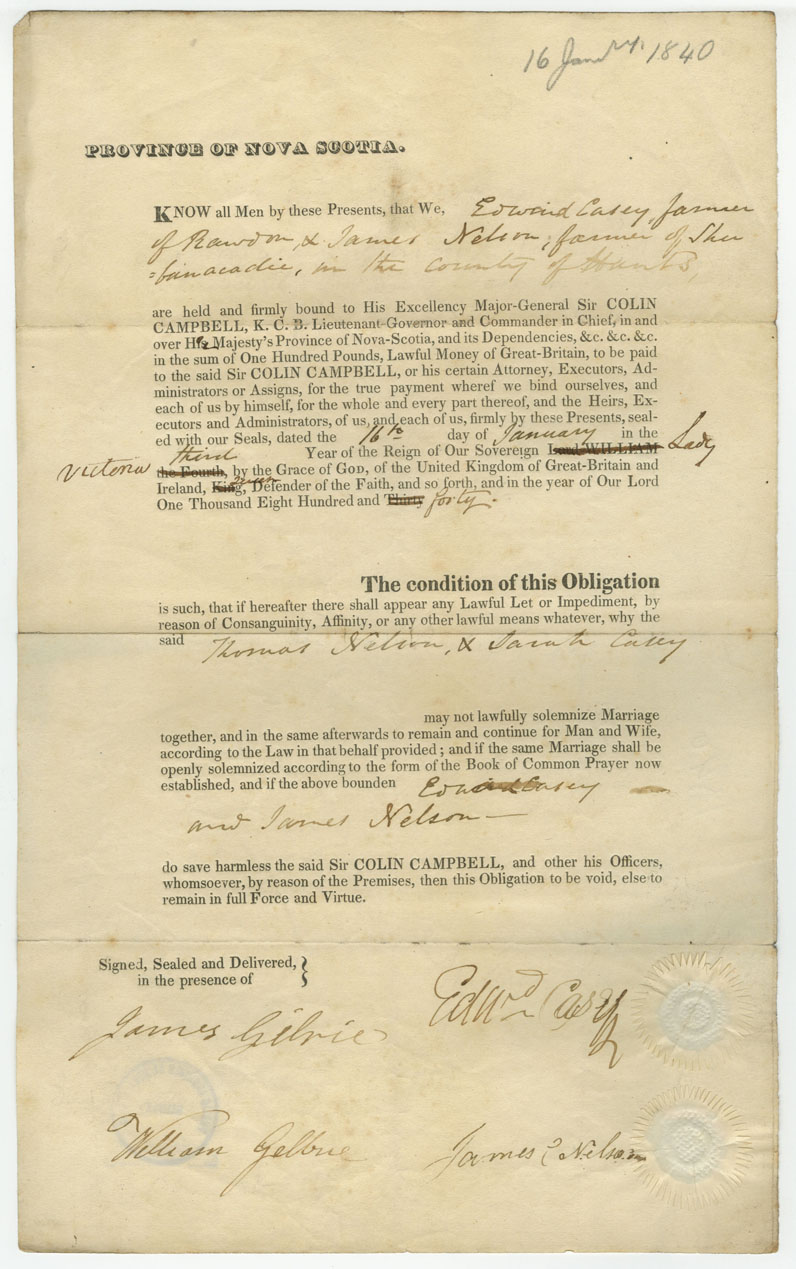 16 Jany. 1840
PROVINCE OF NOVA SCOTIA.
KNOW all Men by these Presents, that We, Edward Casey, farmer
of Rawdon, & James Nelson, farmer of Shu
=banacadie, in the County of Hants,
are held and firmly bound to His Excellency Major-General Sir COLIN
CAMPBELL, K. C. B. Lieutenant-Governor and Commander in Chief, in and
over Her Majesty's Province of Nova-Scotia, and its Dependencies, &c. &c. &c.
in the sum of One Hundred Pounds, Lawful Money of Great-Britain, to be paid
to the said Sir COLIN CAMPBELL, or his certain Attorney, Executors, Ad-
ministrators or Assigns, for the true payment wheref we bind ourselves, and
each of us by himself, for the whole and every part thereof, and the Heirs, Ex-
ecutors and Administrators, of us, and each of us, firmly by these Presents, seal-
ed with our Seals, dated the 16th day of January in the
third Year of the Reign of Our Sovereign Lord WILLIAM Lady
Victoria the Fourth, by the Grace of GOD, of the United Kingdom of Great-Britain and
Ireland, King, Queen Defender of the Faith, and so forth, and in the year of Our Lord
One Thousand Eight Hundred and Thirty forty.
The condition of this Obligation
is such, that if hereafter there shall appear any Lawful Let or Impediment, by
reason of Consanguinity, Affinity, or any other lawful means whatever, why the
said Thomas Nelson, & Sarah Casey
may not lawfully solemnize Marriage
together, and in the same afterwards to remain and continue for Man and Wife,
according to the Law in that behalf provided; and if the same Marriage shall be
openly solemnized according to the form of the Book of Common Prayer now
established, and if the above bounden Edward Casey
and James Nelson—
do save harmless the said Sir COLIN CAMPBELL, and other his Officers,
whomsoever, by reason of the Premises, then this Obligation to be void, else to
remain in full Force and Virtue.
Signed, Sealed and Delivered,
in the presence of
Edwd Casey
James Gilvrie
William Gelbrie
James Nelson